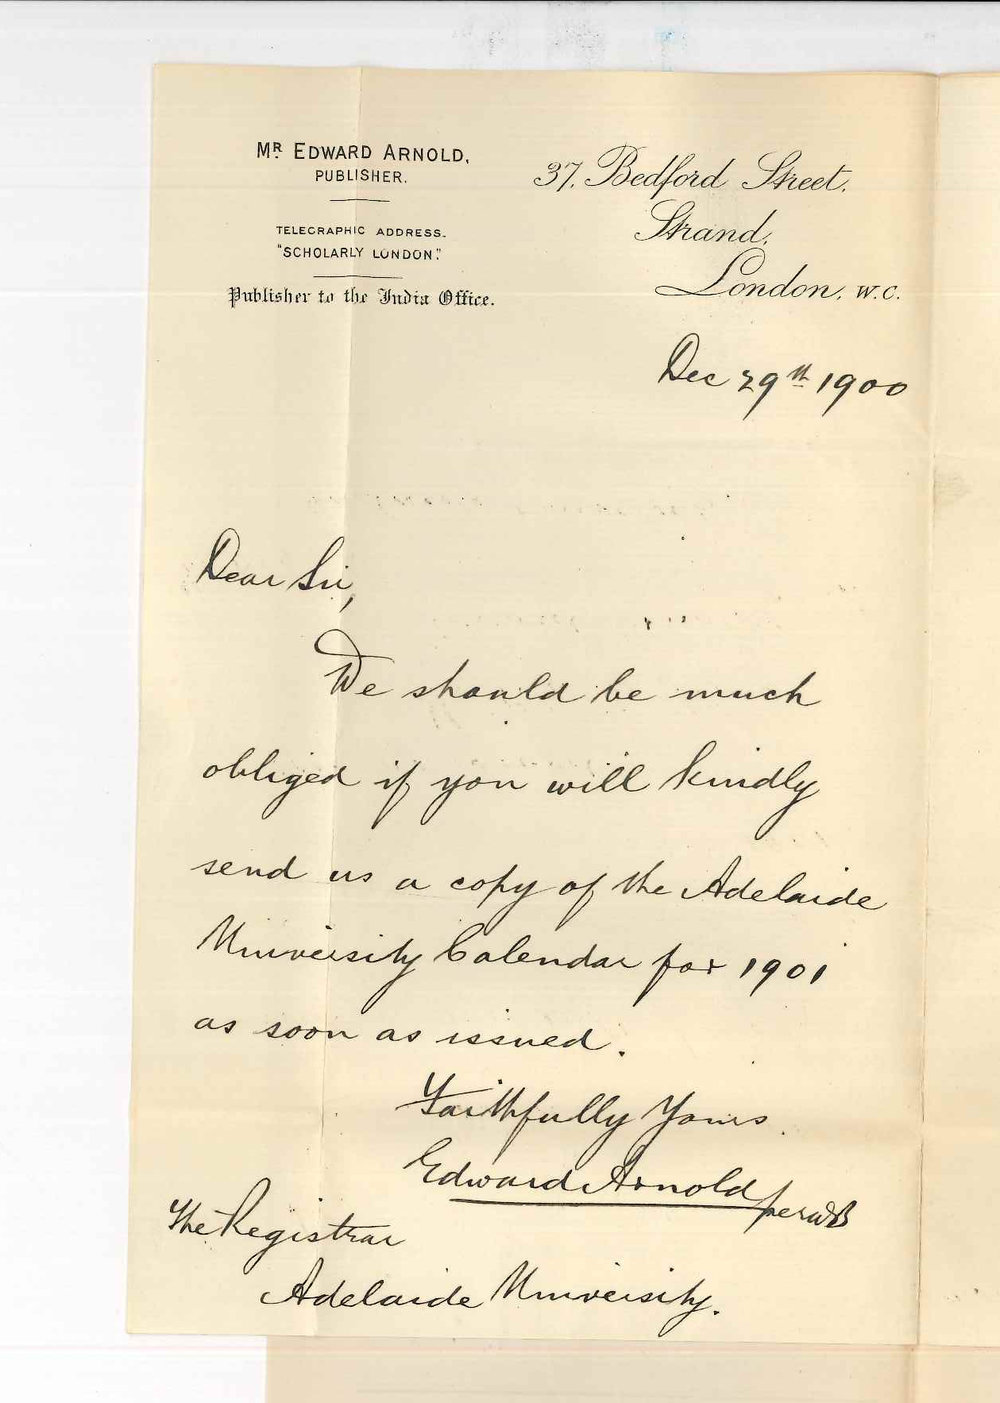 MR. EDWARD ARNOLD,
PUBLISHER.
TELEGRAPHIC ADDRESS.
"SCHOLARLY LONDON."
Publisher to the India Office.
37, Bedford Street,
Strand,
London, W.C.
Dec 29th 1900
Dear Sir,
We should be much
obliged if you will kindly
send us a copy of the Adelaide
University Calendar for 1901
as soon as issued.
Faithfully Yours.
Edward Arnold
per WB
The Registrar
Adelaide University.